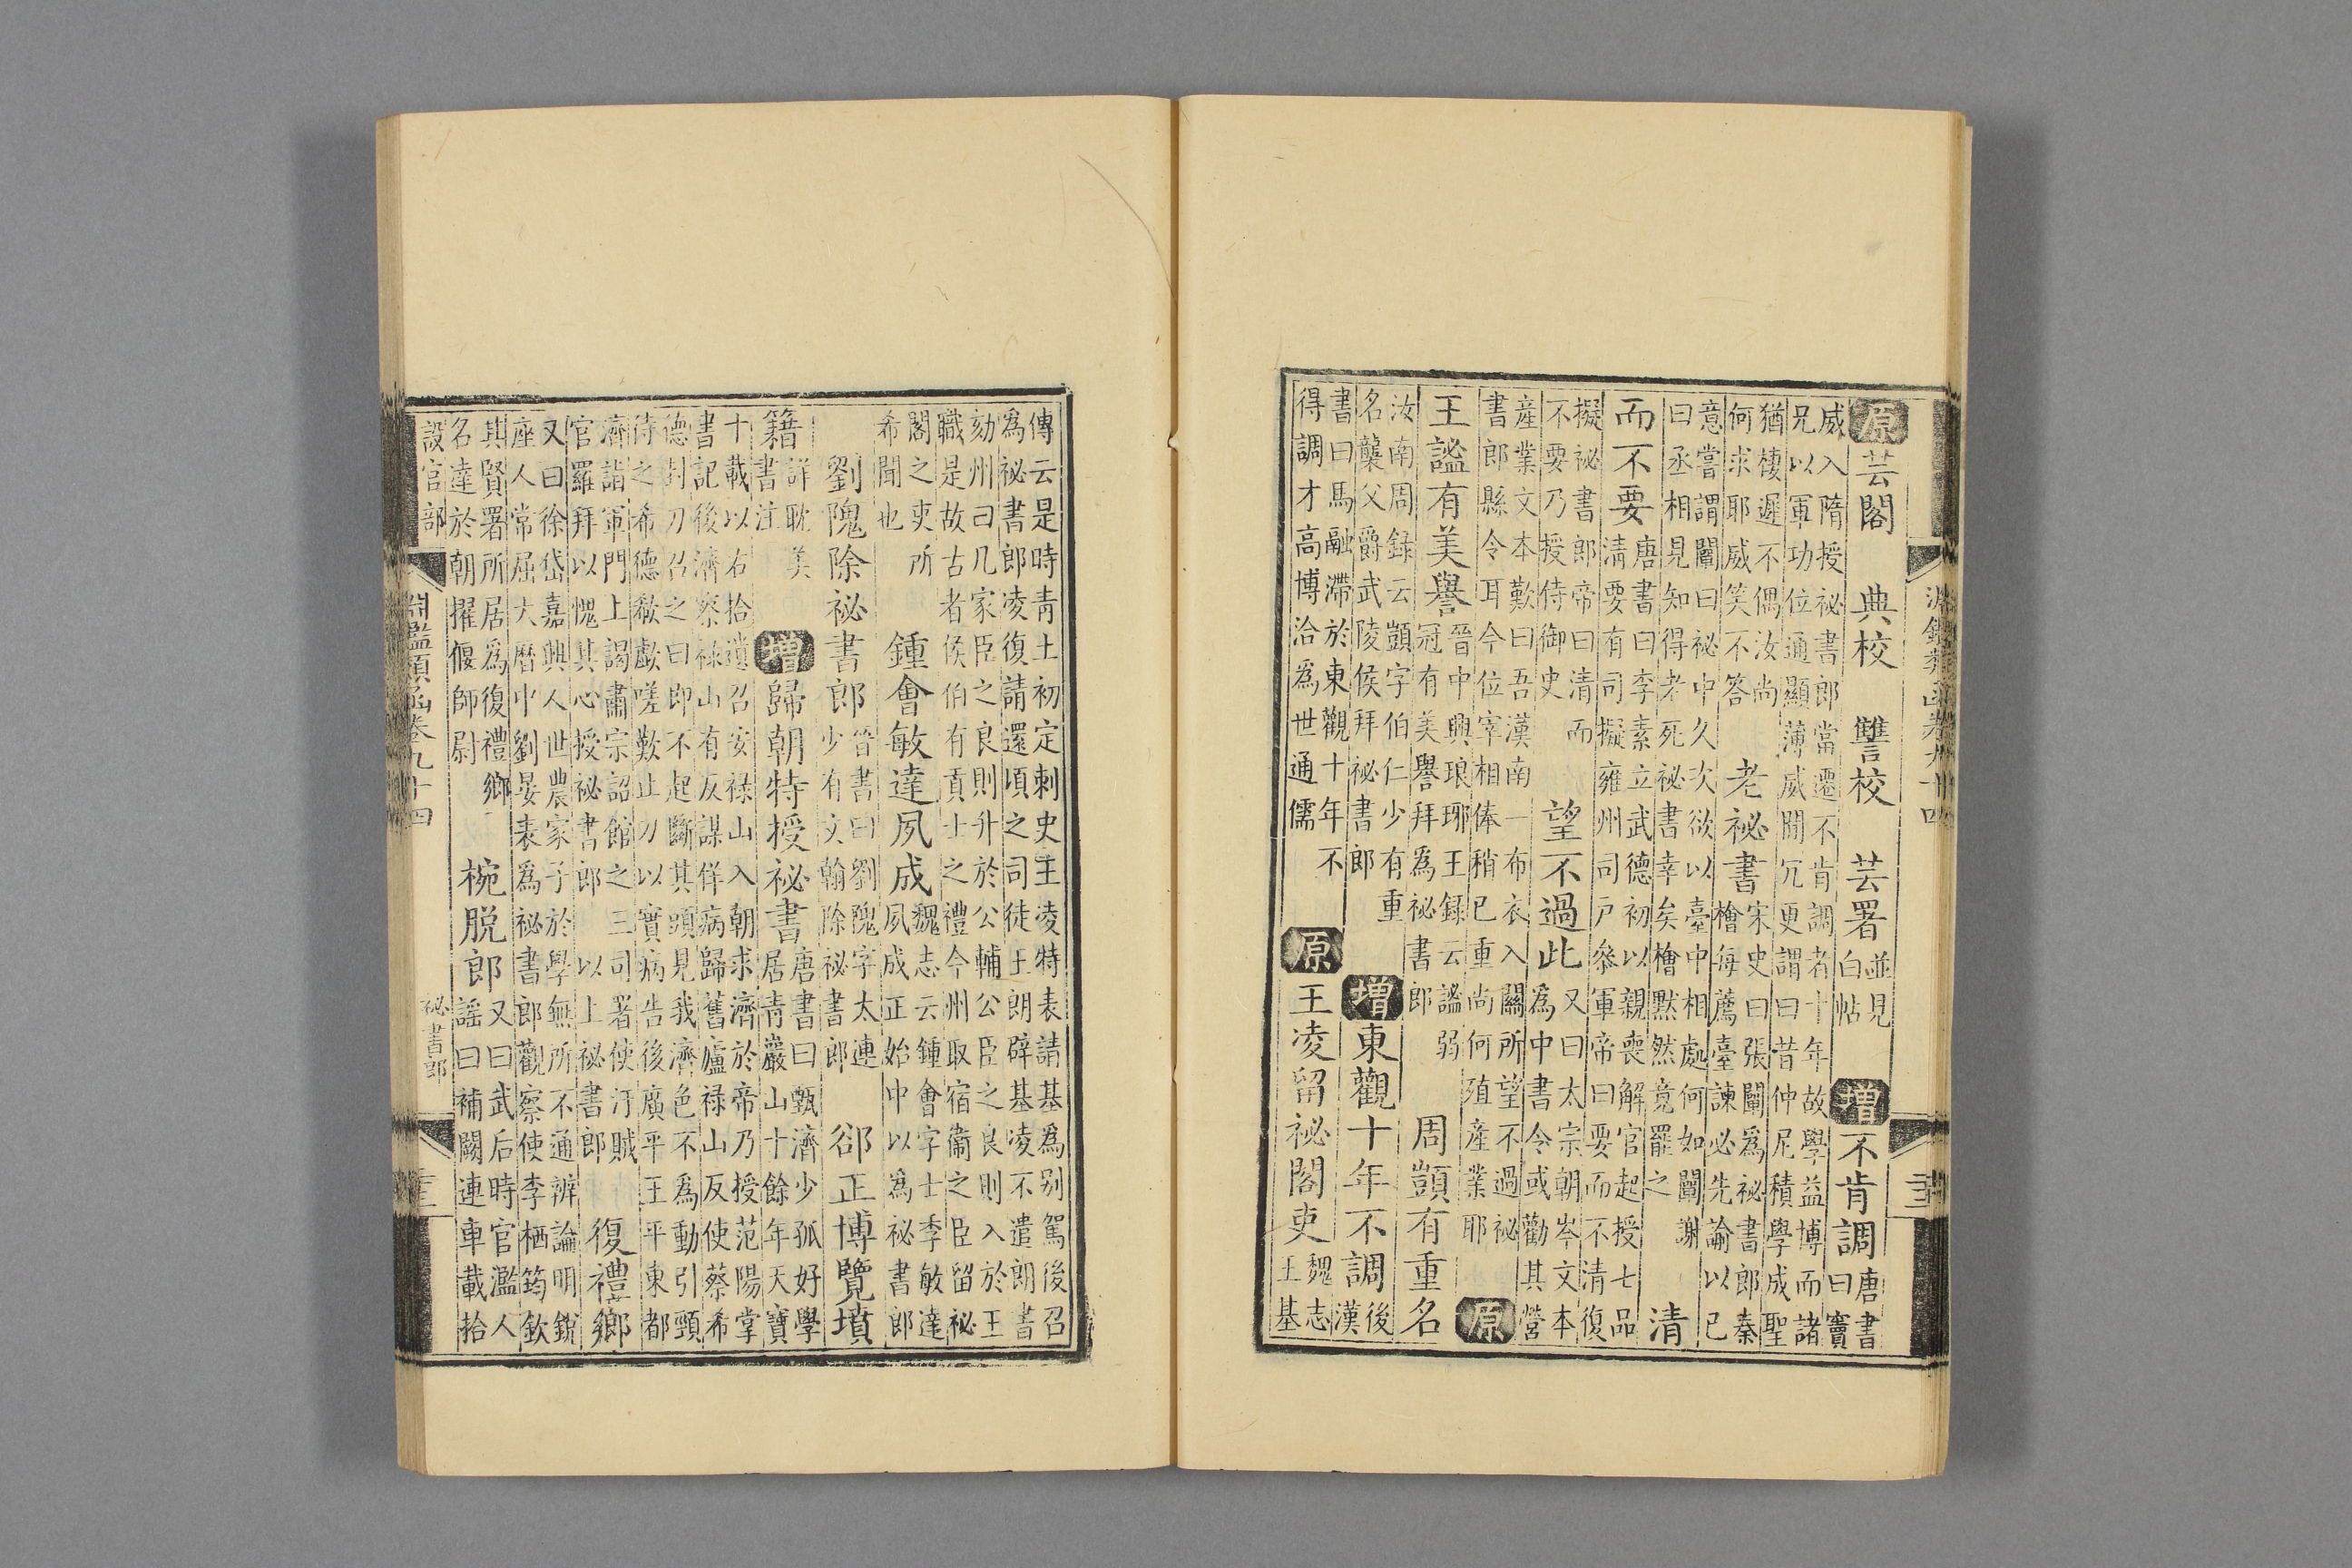 淵鑑類函卷九十四
原 芸閣 典校 讐校 芸署 並見
白帖 增 不肯調 唐書
曰竇
威入隋授祕書郎當遷不肯調者十年故學益博而諸
兄以軍功位通顯薄威閒冗更謂曰昔仲尼積學成聖
猶棲遲不偶汝尚
何求耶威笑不答 老祕書 宋史曰張闡爲祕書郎秦
檜每薦臺諫必先諭以已
意嘗謂闡曰祕中久次欲以臺中相處何如闡謝
曰丞相見知得老死祕書幸矣檜默然竟罷之 清
而不要 唐書曰李素立武德初以親喪解官起授七品
清要有司擬雍州司戸參軍帝曰要而不清復
擬祕書郎帝曰清而
不要乃授侍御史 望不過此 又曰太宗朝岑文本
爲中書令或勸其營
産業文本歎曰吾漢南一布衣入關所望不過祕
書郎縣令耳今位宰相俸稍已重尚何殖産業耶 原
王謐有美譽 晉中興琅琊王録云謐弱
冠有美譽拜爲祕書郎 周顗有重名
汝南周録云顗字伯仁少有重
名襲父爵武陵侯拜祕書郎 增 東觀十年不調 後
漢
書曰馬融滯於東觀十年不
得調才高博洽爲世通儒 原 王凌留祕閣吏 魏志
王基
傳云是時青土初定刺史王凌特表請基爲别駕後召
爲祕書郎凌復請還頃之司徒王朗辟基凌不遣朗書
劾州曰凡家臣之良則升於公輔公臣之良則入於王
職是故古者侯伯有貢士之禮今州取宿衞之臣留祕
閣之吏所
希聞也 鍾會敏達夙成 魏志云鍾會字士季敏達
夙成正始中以爲祕書郎
劉隗除祕書郎 晉書曰劉隗字太連
少有文翰除祕書郎 郤正博覽墳
籍 詳耽美
書注 增 歸朝特授祕書 唐書曰甄濟少孤好學
居青巖山十餘年天寶
十載以右拾遺召安禄山入朝求濟於帝乃授范陽掌
書記後濟察禄山有反謀佯病歸舊廬禄山反使蔡希
德封刀召之曰即不起斷其頭見我濟色不爲動引頸
待之希德歔嗟歎止刀以實病告後廣平王平東都
濟詣軍門上謁肅宗詔館之三司署使汙賊
官羅拜以愧其心授祕書郎 以上祕書郎 復禮鄉
又曰徐岱嘉興人世農家子於學無所不通辨論明銳
座人常屈大曆中劉晏表爲祕書郎觀察使李栖筠欽
其賢署所居爲復禮鄉
名達於朝擢偃師尉 椀脱郎 又曰武后時官濫人
謠曰補闕連車載拾
設官部 淵鑑類函卷九十四 祕書郎